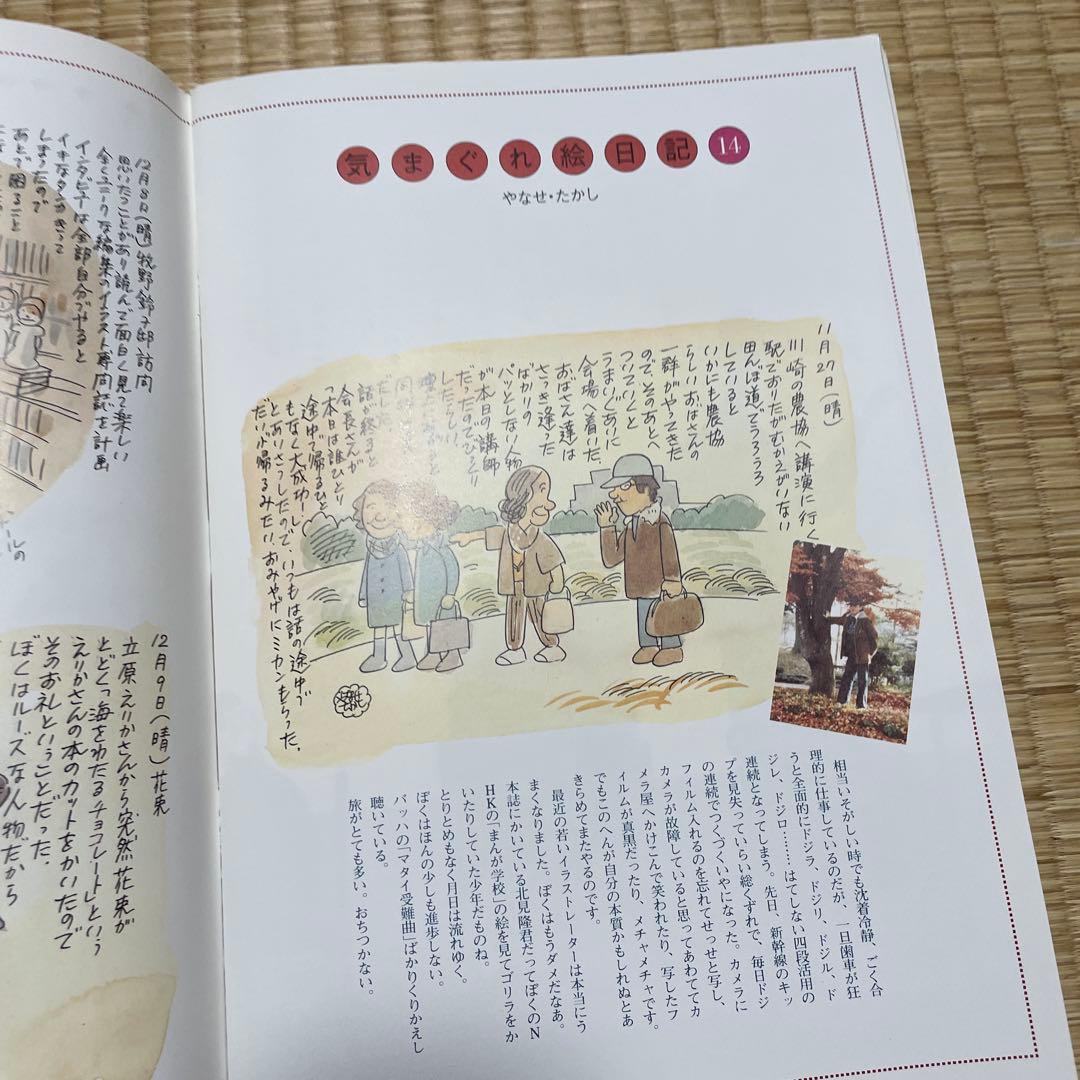 気まぐれ絵日記 14
やなせ・たかし
11月27日(晴)
川崎の農協へ講演に行く
駅でおりたがむかえがいない
田んぼ道でうろうろ
していると
いかにも農協
らしいおばさんの
一群がやってきた
ので、そのあとへ
ついていくと
うまいぐあいに
会場へ着いた。
おばさん達は
さっき逢った
ばかりの
パッとしない人物
が本日の講師
だったのでびっくり
したらしい。
話が終ると
会長さんが
「本日は誰ひとり
途中で帰るひと
もなく大成功!」
とあいさつしたので、いつもは話の途中で
だいぶ帰るみたい。おみやげにミカンもらった。
相当いそがしい時でも沈着冷静、ごく合
理的に仕事しているのだが、一旦歯車が狂
うと全面的にドジラ、ドジリ、ドジル、ド
ジレ、ドジロ……はてしない四段活用の
連続となってしまう。先日、新幹線のキッ
プを見失っていらい総くずれで、毎日ドジ
の連続でつくづくいやになった。カメラに
フィルム入れるのを忘れてせっせと写し、
カメラが故障していると思ってあわててカ
メラ屋へかけこんで笑われたり、写したフ
ィルムが真黒だったり、メチャメチャです。
でもこのへんが自分の本質かもしれぬとあ
きらめてまたやるのです。
最近の若いイラストレーターは本当にう
まくなりました。ぼくはもうダメだなあ。
本誌にかいている北見隆君だってぼくのN
HKの「まんが学校」の絵を見てゴリラをか
いたりしていた少年だものね。
とりとめもなく月日は流れゆく。
ぼくはほんの少しも進歩しない。
バッハの「マタイ受難曲」ばかりくりかえし
聴いている。
旅がとても多い。おちつかない。
12月8日(晴)牧野鈴子邸訪問
思いたつことがあり読んで面白く見て楽しい
全くユニークな編集のイラスト専門誌を計画
インタビューは全部自分でやると
イキなタンカきって
しまったので
あとで困ること
12月9日(晴)花束
立原えりかさんから突然花束が
とどく「海をわたるチョコレート」という
えりかさんの本のカットをかいたので
そのお礼ということだった。
ぼくはルーズな人物だから